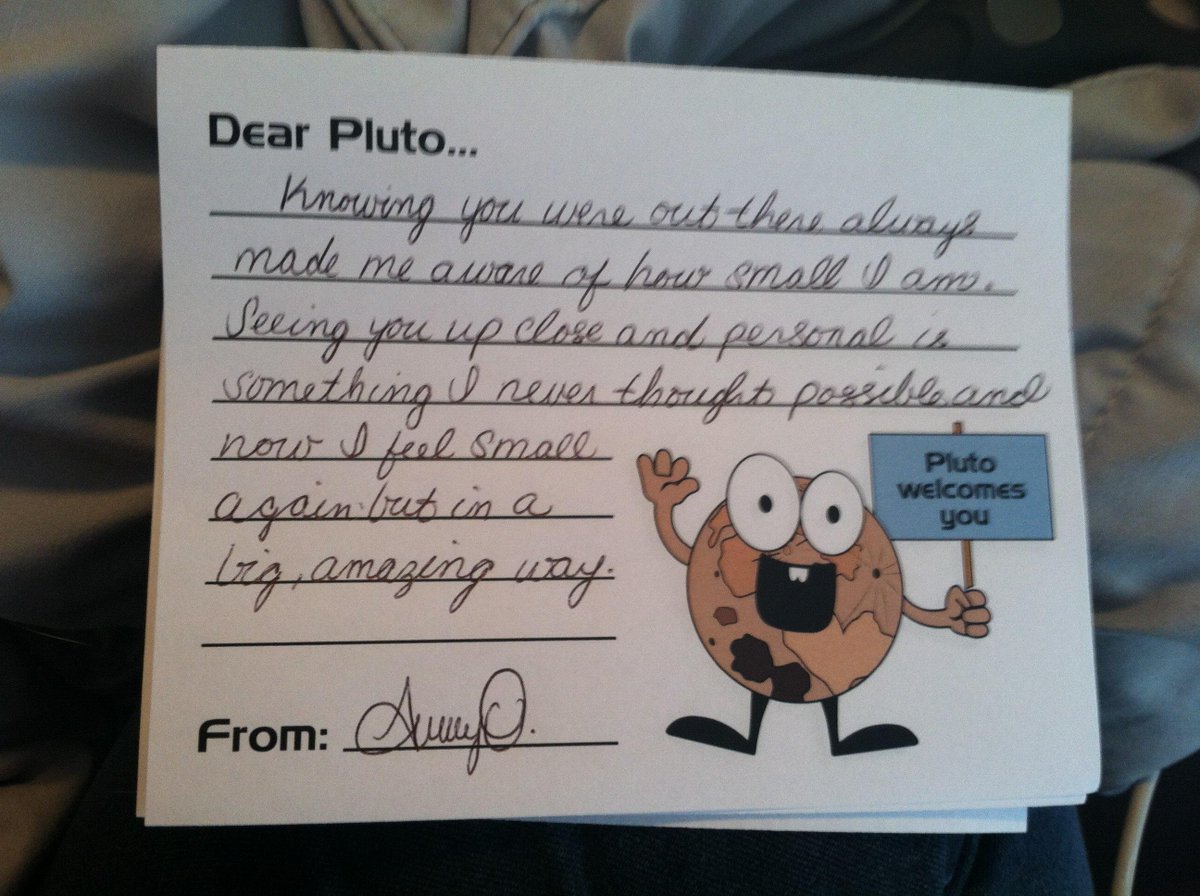 Dear Pluto...
Knowing you were out there always
made me aware of how small I am.
Seeing you up close and personal is
something I never thought possible and
now I feel small
again but in a
big, amazing way.
Pluto
welcomes
you
From: